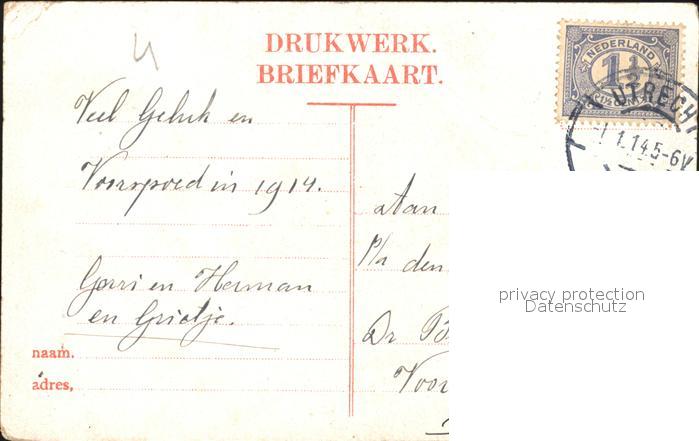 4
DRUKWERK.
BRIEFKAART.
NEDERLAND
1½
UTRECHT
1.1.14 5-6V
Veel Geluk en
Voorspoed in 1914.
Gerri en Herman
en Grietje.
naam.
adres,
Aan
P/a den
Dr
Voor
privacy protection
Datenschutz